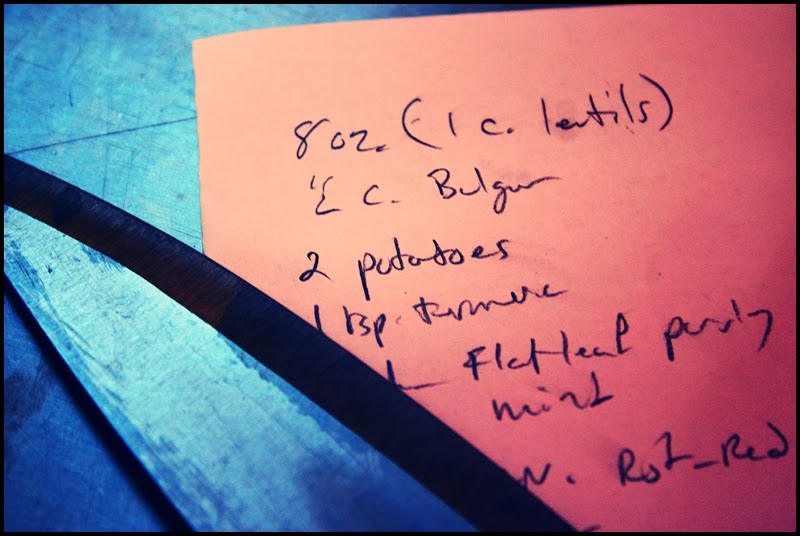 8 oz. (1 c. lentils)
c. Bulgur
2 potatoes
1 tsp. turmeric
Flat leaf parsly
mint
Red